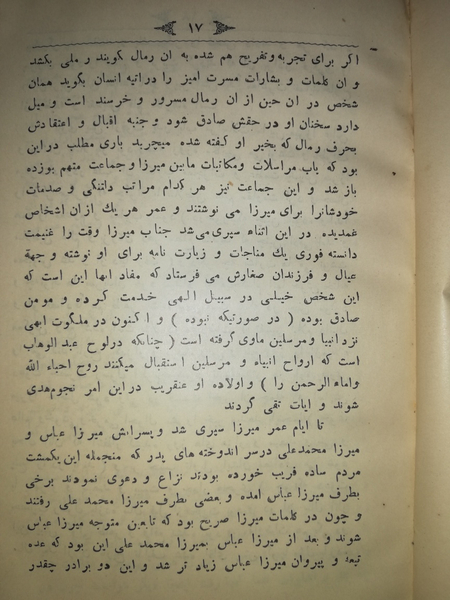 ١٧
اگر برای تجربه و تفریح هم شده به ان رمال گویند رملی بکشد
و ان کلمات و بشارات مسرت امیز را در اتیه انسان بگوید همان
شخص در ان حین از ان رمال مسرور و خرسند است و میل
دارد سخنان او در حقش صادق شود و جنبه اقبال و اعتقادش
بحرف رمال که بخیر او گفته شده میچربد باری مطلب در این
بود که باب مراسلات و مکاتبات مابین میرزا و جماعت متهم بوزده
باز شد و این جماعت نیز هر کدام مراتب دلتنگی و صدمات
خودشانرا برای میرزا می نوشتند و عمر هر یك از ان اشخاص
غمدیده در این اثناء سپری می شد جناب میرزا وقت را غنیمت
دانسته فوری یك مناجات و زیارت نامه برای او نوشته و جهة
عیال و فرزندان صغارش می فرستاد که مفاد انها این است که
این شخص خیلی در سبیل الهی خدمت کرده و مومن
صادق بوده ( در صورتیکه نبوده ) و اکنون در ملکوت ابهی
نزد انبیا و مرسلین ماوی گرفته است ( چنانکه در لوح عبد الوهاب
است که ارواح انبیاء و مرسلین استقبال میکنند روح احباء الله
و اماء الرحمن را ) و اولاده او عنقریب در این امر نجوم هدی
شوند و ایات تقی گردند
تا ایام عمر میرزا سپری شد و پسرانش میرزا عباس و
میرزا محمد علی در سر اندوخته های پدر که منجمله این یکمشت
مردم ساده فریب خورده بودند نزاع و دعوی نمودند برخی
بطرف میرزا عباس امده و بعضی بطرف میرزا محمد علی رفتند
و چون در کلمات میرزا صریح بود که تابعین متوجه میرزا عباس
شوند و بعد از میرزا عباس بمیرزا محمد علی این بود که عده
تبعه و پیروان میرزا عباس زیاد تر شد و این دو برادر چقدر